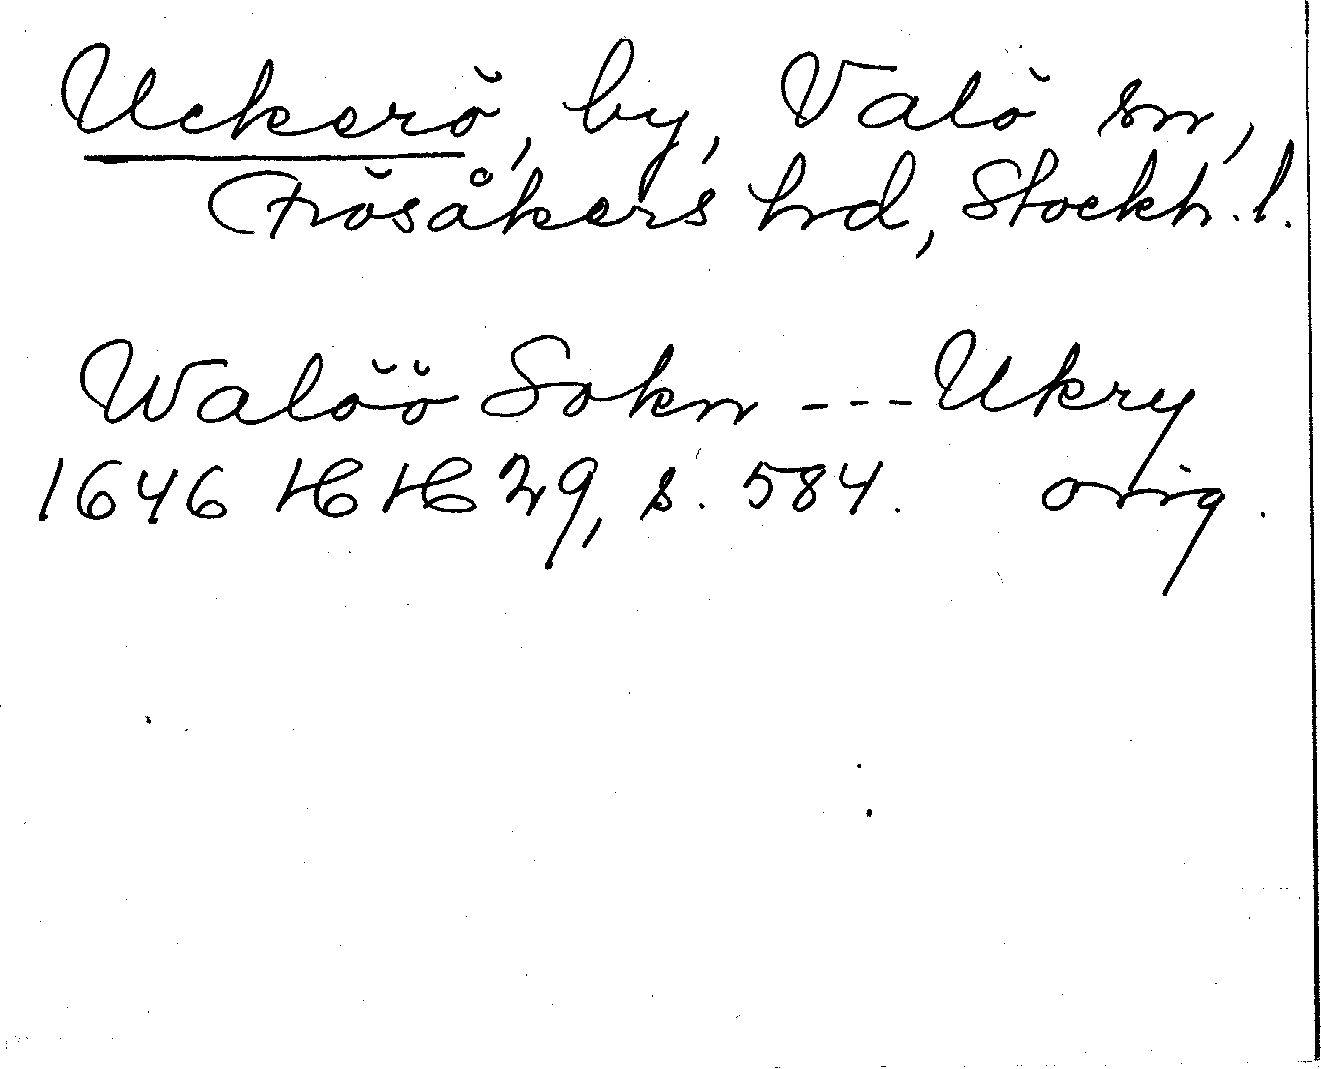 Uckerö, by, Valö sn,
Frösåkers hrd, Stockh. l.
Walöö Sokn --- Ukry
1646 HH 29, s. 584. orig.